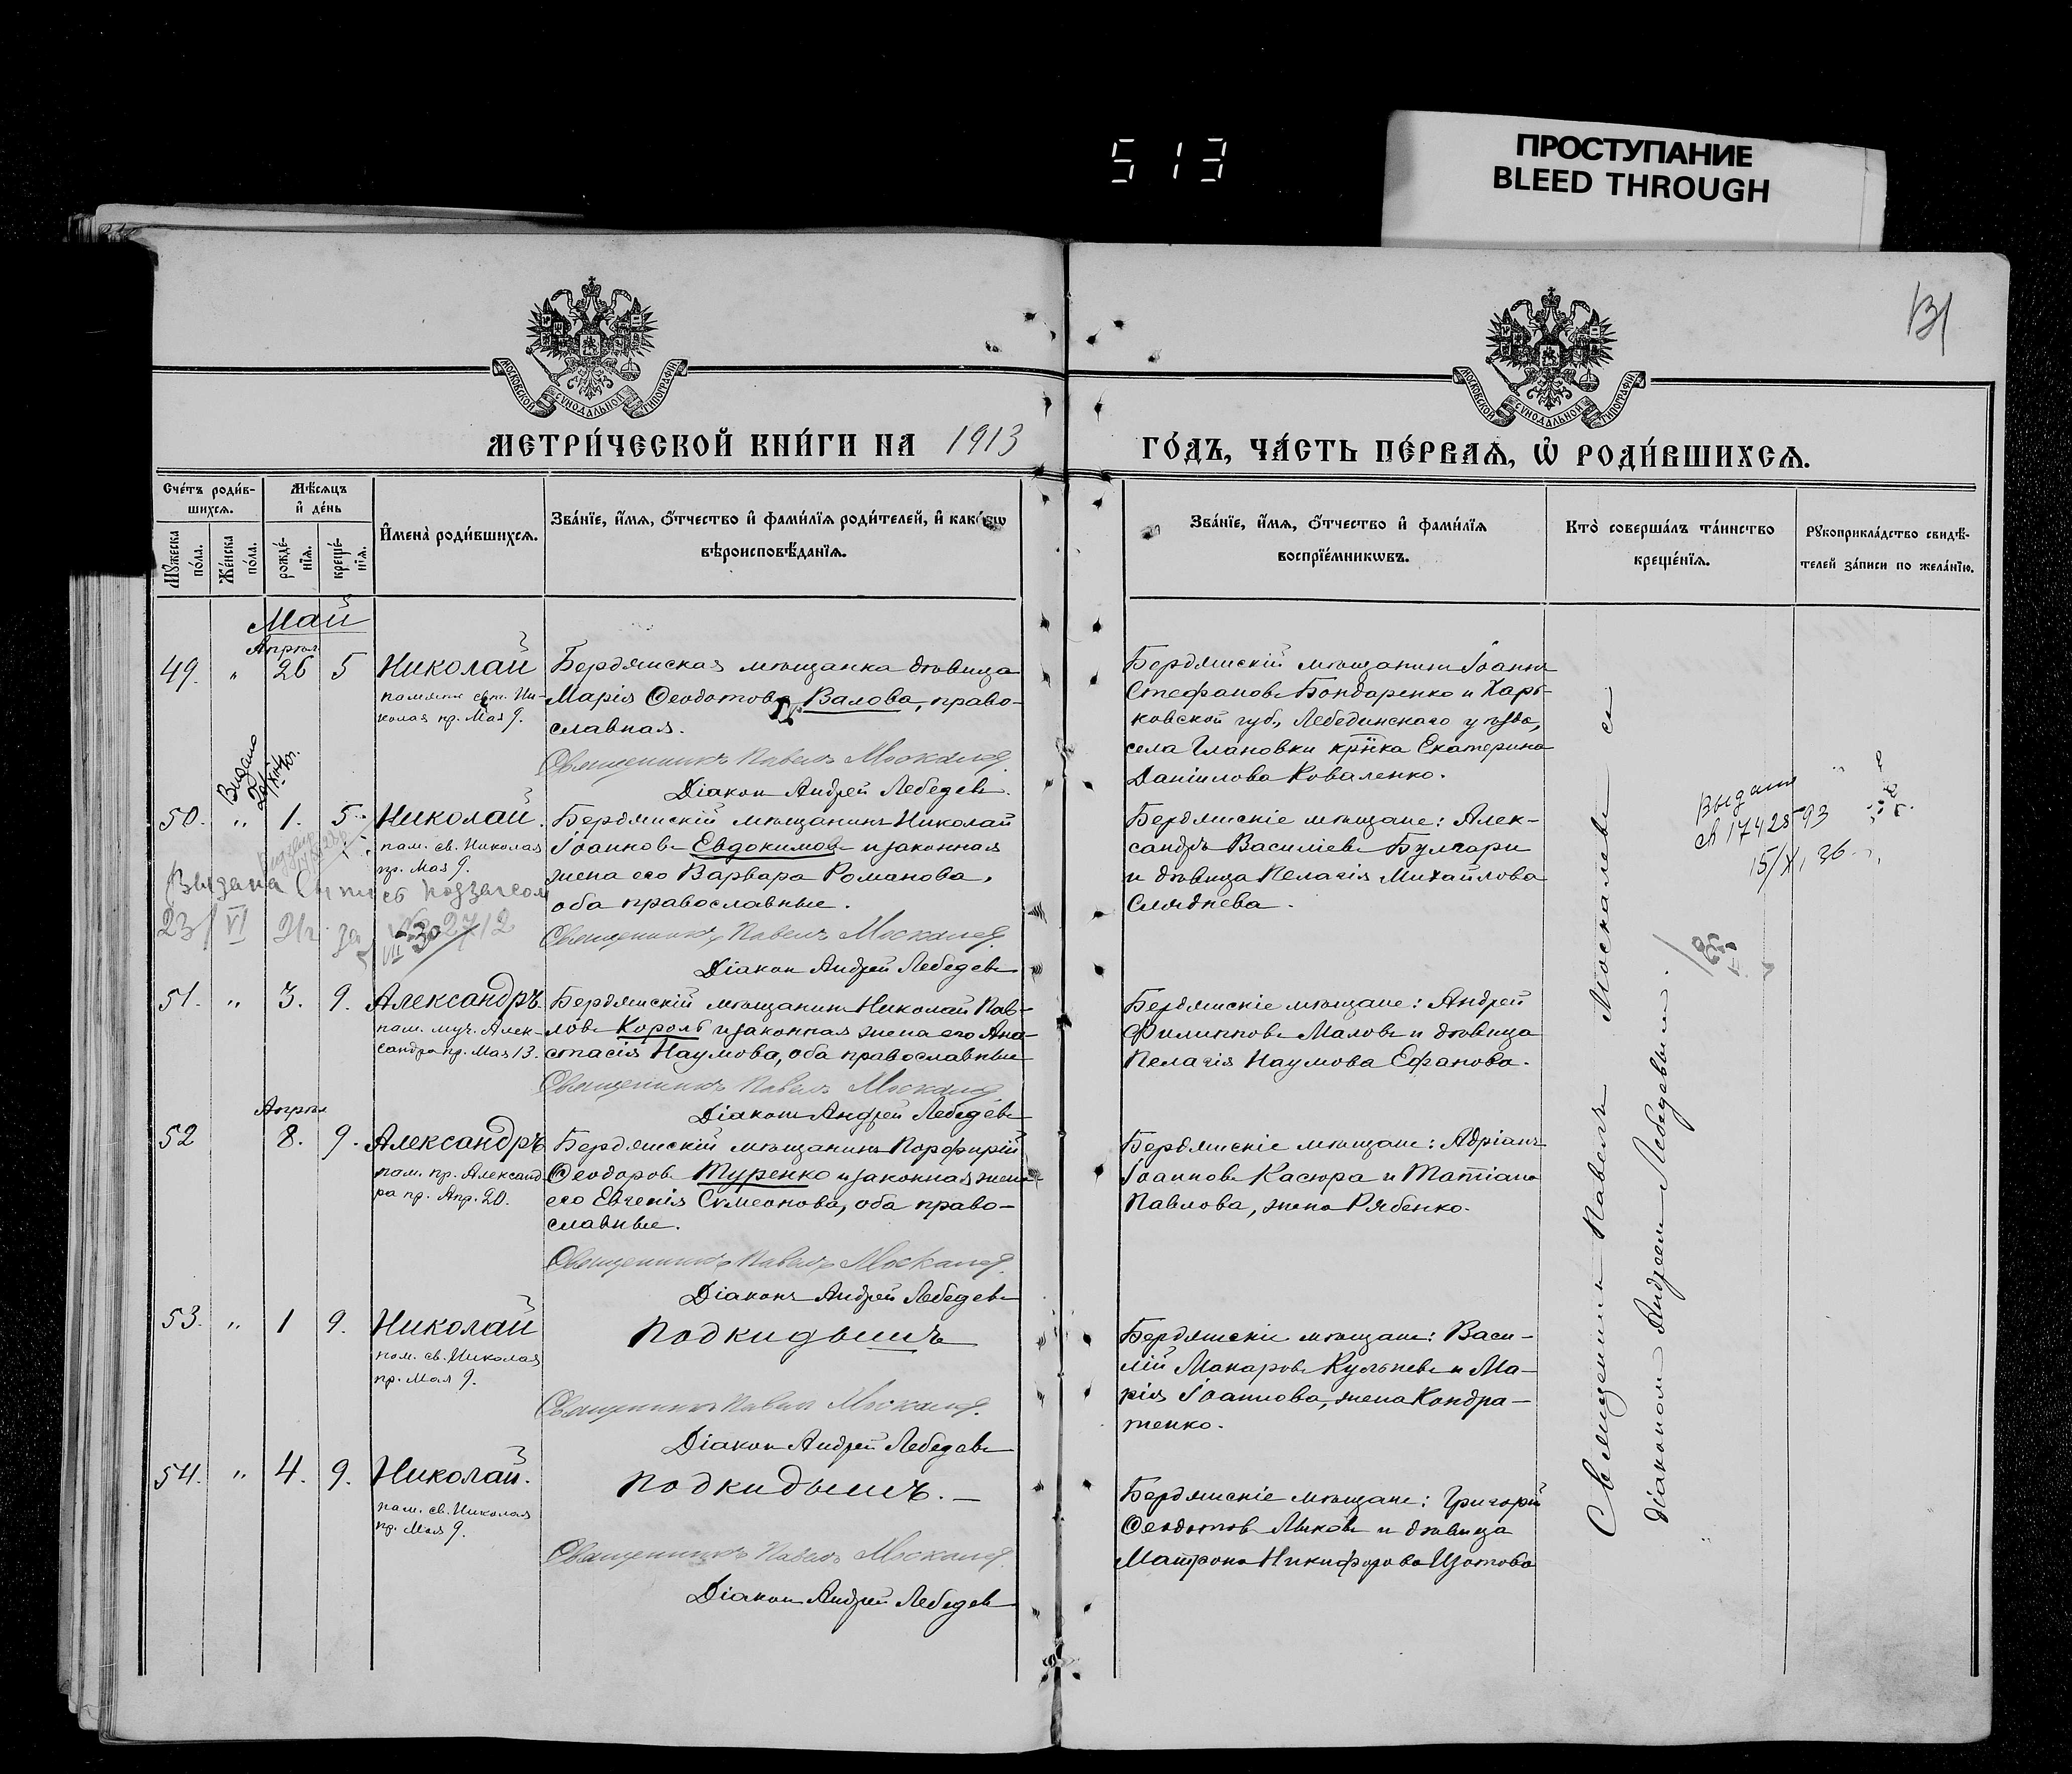 513
ПРОСТУПАНИЕ
BLEED THROUGH
131
МОСКОВСКОЙ СѴНОДАЛЬНОЙ ТИПОГРАФІИ
МОСКОВСКОЙ СѴНОДАЛЬНОЙ ТИПОГРАФІИ
МЕТРИ́ЧЕСКОЙ КНИ́ГИ НА 1913
ГО́ДЪ, ЧА́СТЬ ПЕ́РВАѦ, Ѡ҆ РОДИ́ВШИХСѦ.
Сче́тъ роди́в-
шихсѧ.
Мꙋжеска по́ла.
Же́нска по́ла.
Мѣ́сѧцъ
и҆ де́нь
рожде́-
нїѧ.
креще́-
нїѧ.
И҆мена̀ роди́вшихсѧ.
Зва́нїе, и҆́мѧ, ѻ҆́тчество и҆ фами́лїѧ роди́телей, и҆ како́гѡ
вѣроисповѣ́данїѧ.
Зва́нїе, и҆́мѧ, ѻ҆́тчество и҆ фами́лїѧ
воспрїе́мникѡвъ.
Кто̀ соверша́лъ та́инство
креще́нїѧ.
Рꙋкоприкла́дство свидѣ́-
телей за́писи по жела́нїю.
Май
Апрѣл
49. " 26 5 Николай
памяти свт. Ни-
колая пр. Мая 9.
Бердянская мѣщанка дѣвица
Марія Ѳеодотова Валова, право-
славная.
Священникъ Павелъ Москалев
Діакон Андрей Лебедев
Бердянскій мѣщанин Іоанн
Стефанов Бондаренко и Харь-
ковской губ., Лебединскаго уѣзда,
села кр-нка Екатерина
Даніилова Коваленко.
Выдано
50. " 1. 5. Николай.
пам. св. Николая
пр. Мая 9.
Бердянскій мѣщанинъ Николай
Іоаннов Евдокимов и законная
жена его Варвара Романова,
оба православные.
Священникъ Павелъ Москалев
Діакон Андрей Лебедев
Бердянскіе мѣщане: Алек-
сандръ Василіев Булгари
и дѣвица Пелагія Михайлова
Слѣднева.
Выдана
23/VI
Выдан
15/X, 36
51. " 3. 9. Александръ.
пам. муч. Алек-
сандра пр. Мая 13.
Бердянскій мѣщанин Николай Пав-
лов Король и законная жена его Ана-
стасія Наумова, оба православные
Священникъ Павелъ Москалев
Діакон Андрей Лебедев
Бердянскіе мѣщане: Андрей
Филиппов Малов и дѣвица
Пелагія Наумова Ефанова.
Апрѣл
52 8. 9. Александръ
пам. пр. Александ
ра пр. Апр. 20.
Бердянскій мѣщанинъ Порфирій
Ѳеодоров Туренко и законная жена
его Евгенія Сѵмеонова, оба право-
славные.
Священникъ Павелъ Москалев
Діаконъ Андрей Лебедев
Бердянскіе мѣщане: Адріанъ
Іоаннов Касюра и Татіана
Павлова, жена Рябенко.
53. " 1 9. Николай
пам. св. Николая
пр. Мая 9.
Подкидышъ
Священникъ Павел Москалев
Діакон Андрей Лебедев
Бердянскіе мѣщане: Васи-
лій Макаров Кульнев и Ма-
рія Іоаннова, жена Кондра-
тенко.
54. " 4. 9. Николай.
пам. св. Николая
пр. Мая 9.
Подкидышъ.
Священникъ Павелъ Москалев
Діакон Андрей Лебедев
Бердянскіе мѣщане: Григорій
Ѳеодотов Лыков и дѣвица
Матрона Никифорова
Священник Павелъ Москалев с
діаконом Андреем Лебедевым.